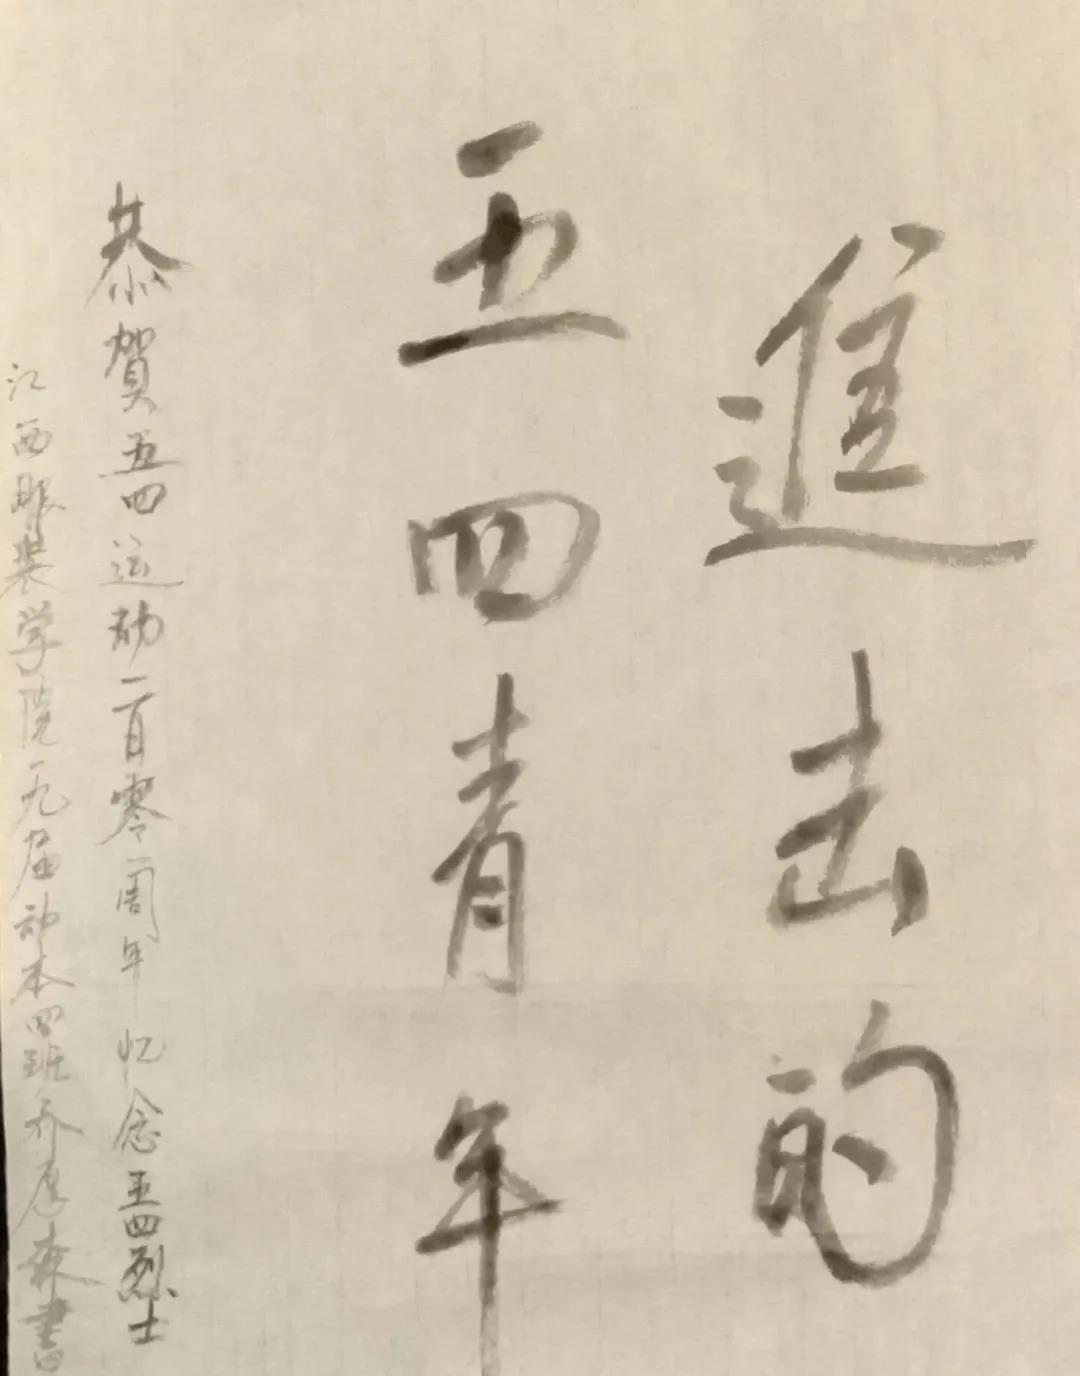 進击的
五四青年
恭賀五四运动一百零一周年忆念五四烈士
江西服装学院一九届动本四班乔厚森書